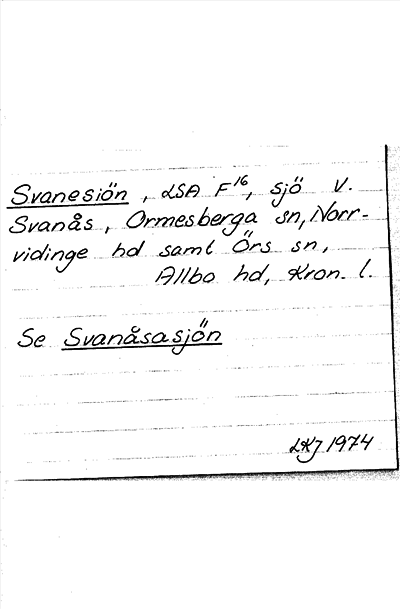 Svanesiön, LSA F16, sjö v.
Svanås, Ormesberga sn, Norr-
vidinge hd samt Örs sn,
Allbo hd, Kron. l.
Se Svanåsasjön
LKJ 1974